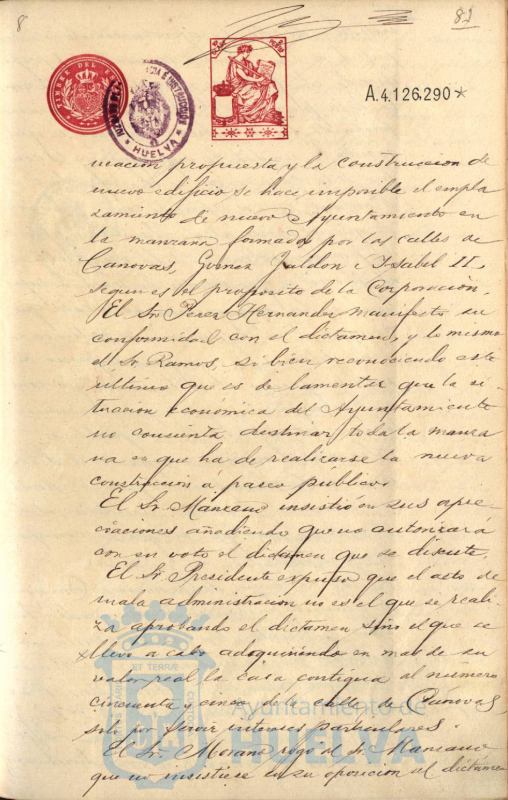 8
82
TIMBRE DEL
HUELVA
A.4.126.290*
nueacion propuesta y la construccion de
nuevo edificio se hace imposible el empla
zamiento de nuevo Ayuntamiento en
la manzana formada por las calles de
Canovas, Gomez Jaldon é Isabel II,
segun es el proposito de la Corporación.
El Sr Perez Hernandez manifestó su
conformidad con el dictamen, y lo mismo
el Sr Ramos, si bien reconociendo este
ultimo que es de lamentar que la si-
tuacion económica del Ayuntamiento
no consienta destinar toda la manza
na en que ha de realizarse la nueva
construccion a paseo público.
El Sr Manzano insistió en sus apre-
ciaciones añadiendo que no autorizará
con su voto el dictamen que se discute.
El Sr Presidente expuso que el acto de
mala administracion no es el que se reali-
za aprobando el dictamen sino el que se
llevó a cabo adoquinando en mas de su
valor real la casa contigua al número
cincuenta y cinco de la calle de Cánovas,
solo por servir intereses particulares.
El Sr Morano rogó al Sr Manzano
que no insistiese en su oposicion al dictamen
ET TERRÆ
Ayuntamiento de
HUELVA